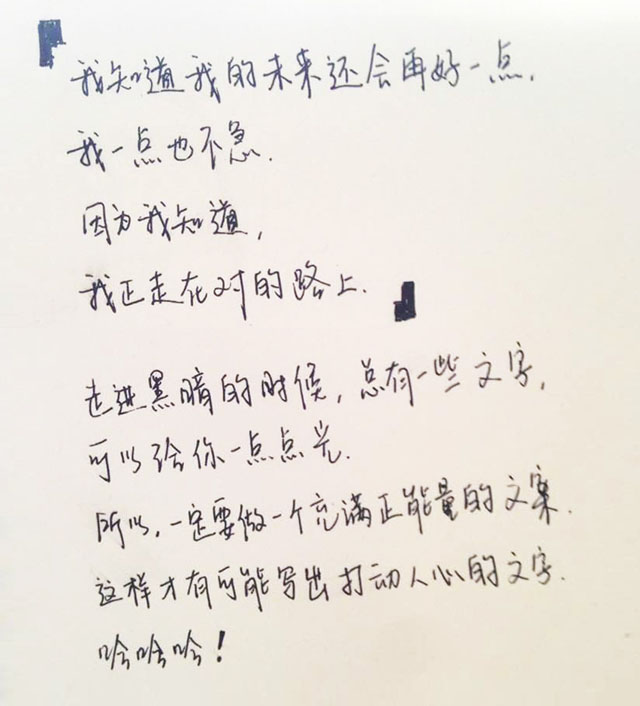 「我知道我的未来还会再好一点.
我一点也不急.
因为我知道,
我正走在对的路上.」
走进黑暗的时候,总有一些文字,
可以给你一点点光.
所以,一定要做一个充满正能量的文案.
这样才有可能写出打动人心的文字.
哈哈哈!